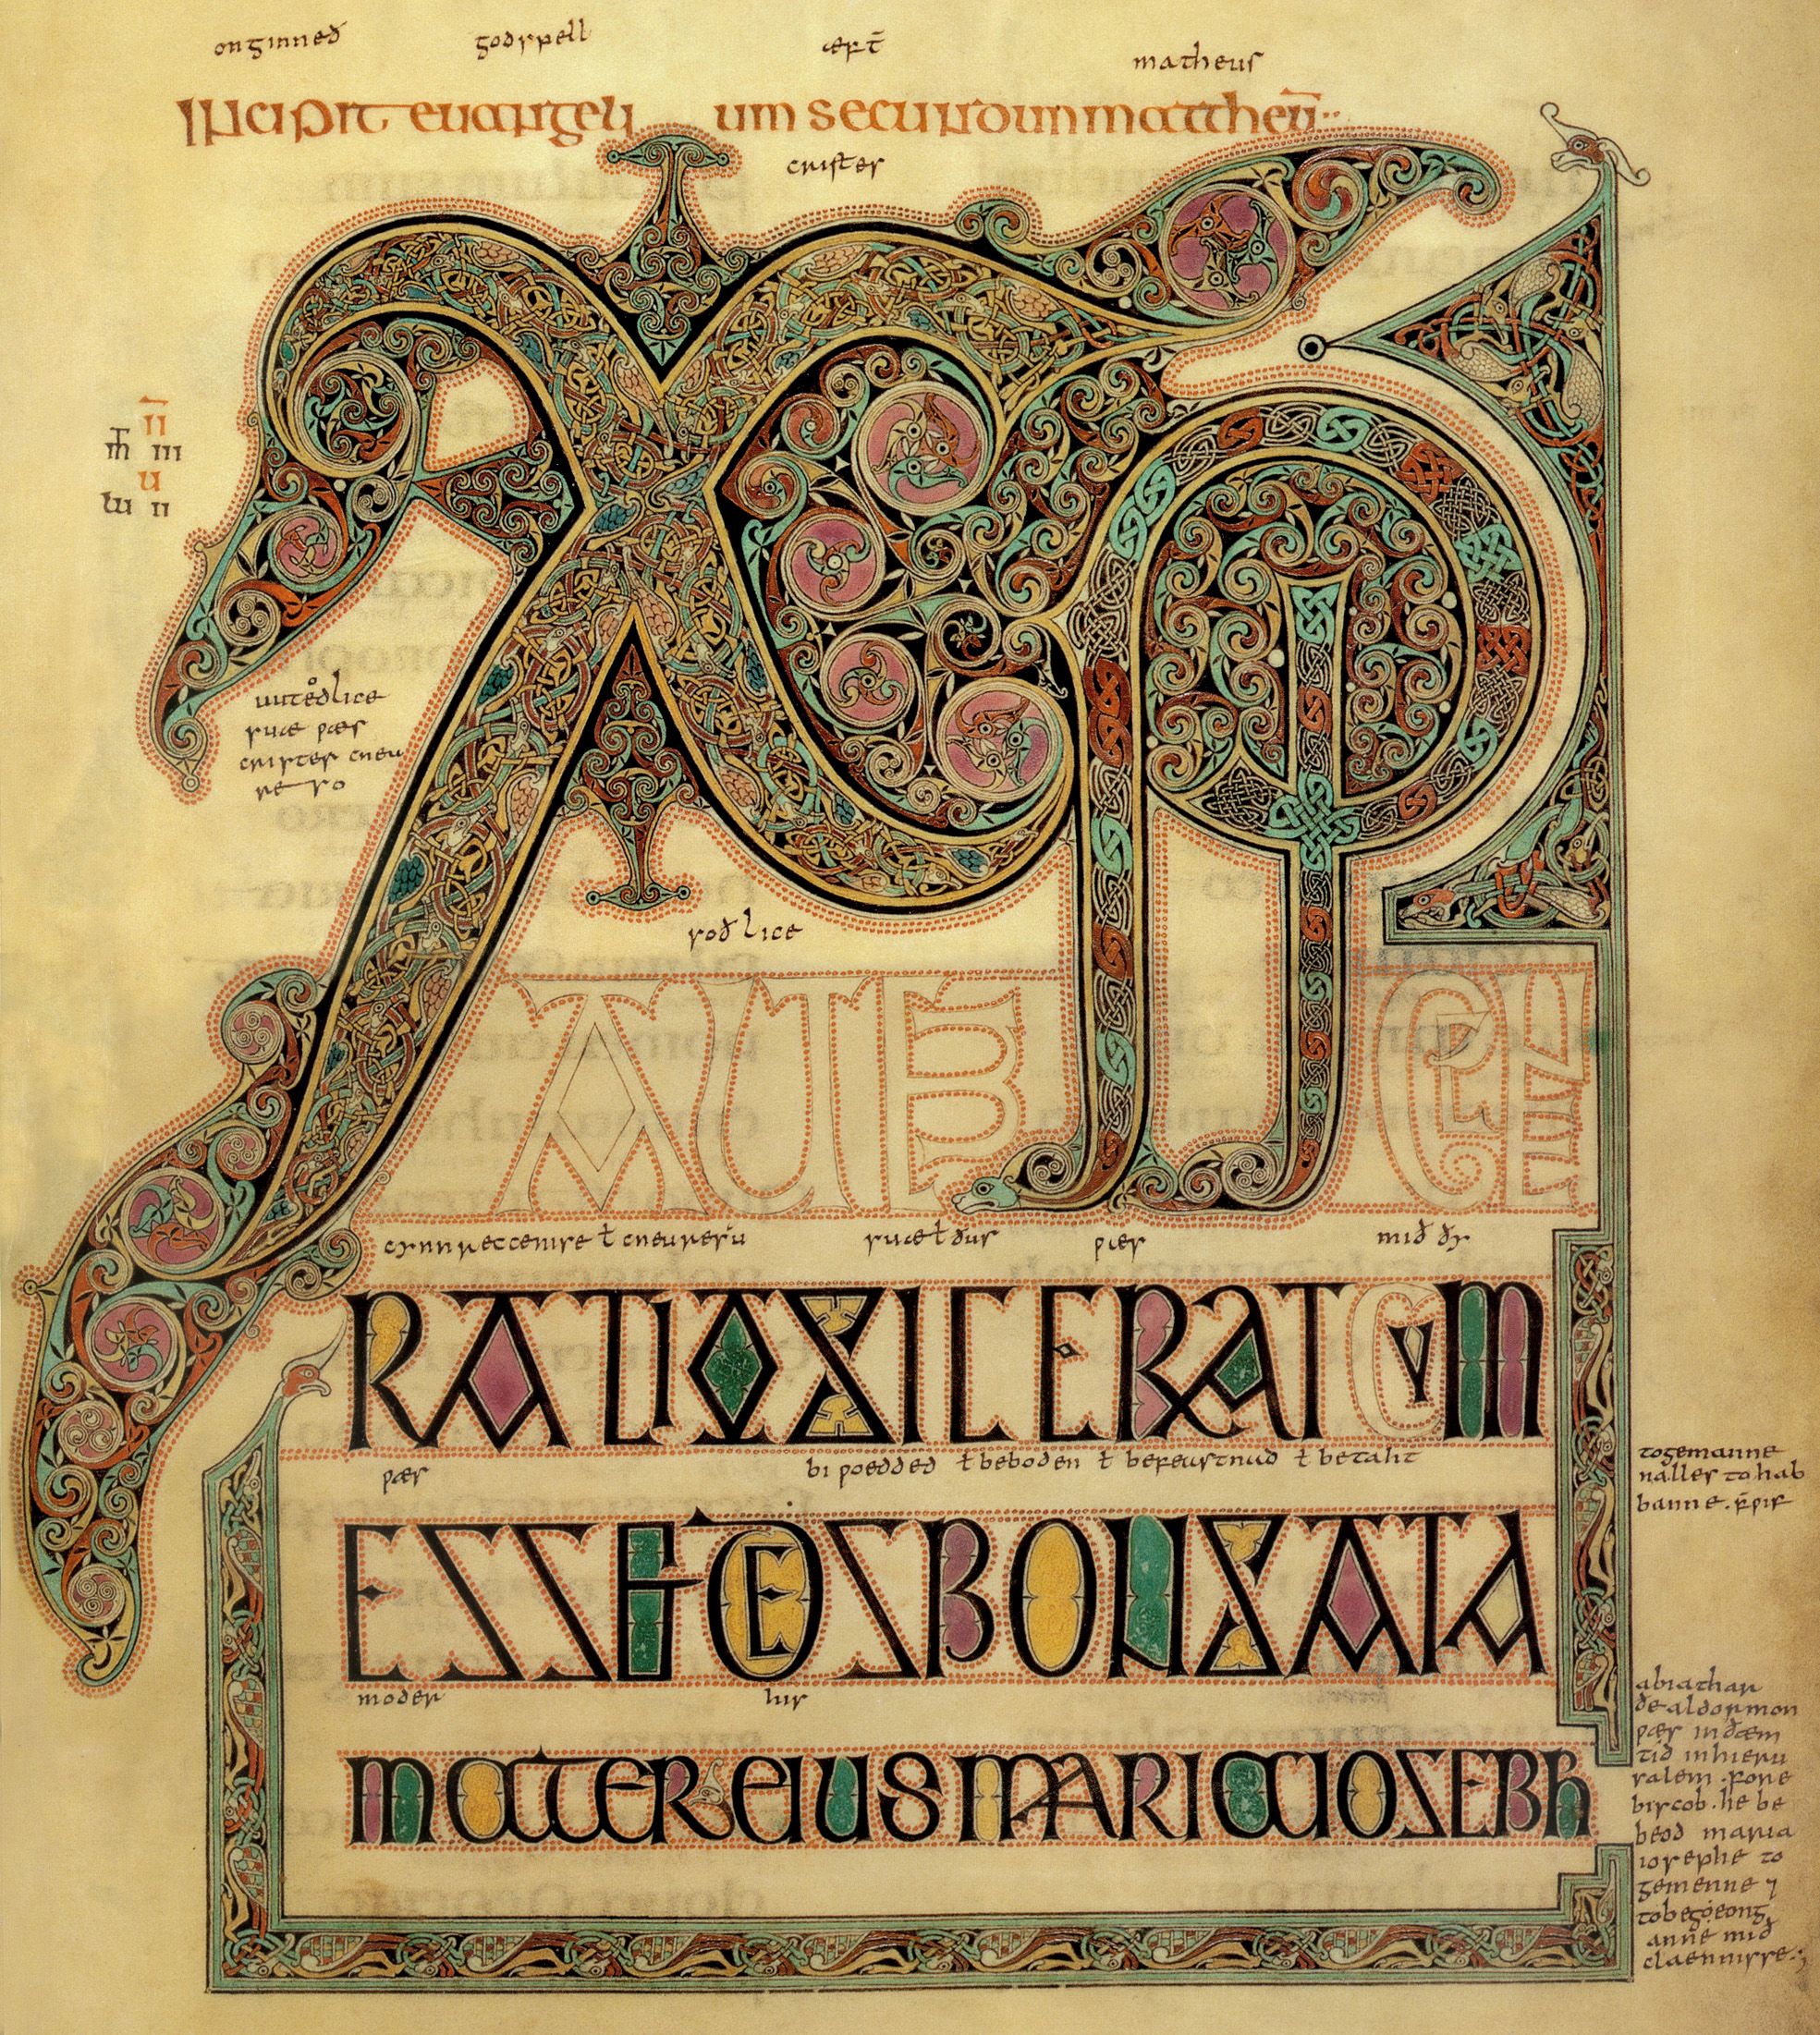 onginneð godspell æft̄ matheus
Incipit euangelium secundum mattheū
cristes
XPI
uutedlice
suæ wæs
cristes cneu
reso
soðlice
AUTEM GENE
cynnreccenise ł cneuresuu suæ ł ðus wæs mið ðy
RATIO SIC ERAT CUM
wæs bi woedded ł beboden ł befeastnad ł betaht
to gemanne
nalles to hab
banne
ESSET DESPONSATA
moder his
MATER EIUS MARIA IOSEBH
abiathar
ðe aldormon
wæs in ðæm
tid in hieru
salem fore
biscob. he be
beod maria
iosephe to
gemenne ⁊
to begeong
anne mið
claennisse